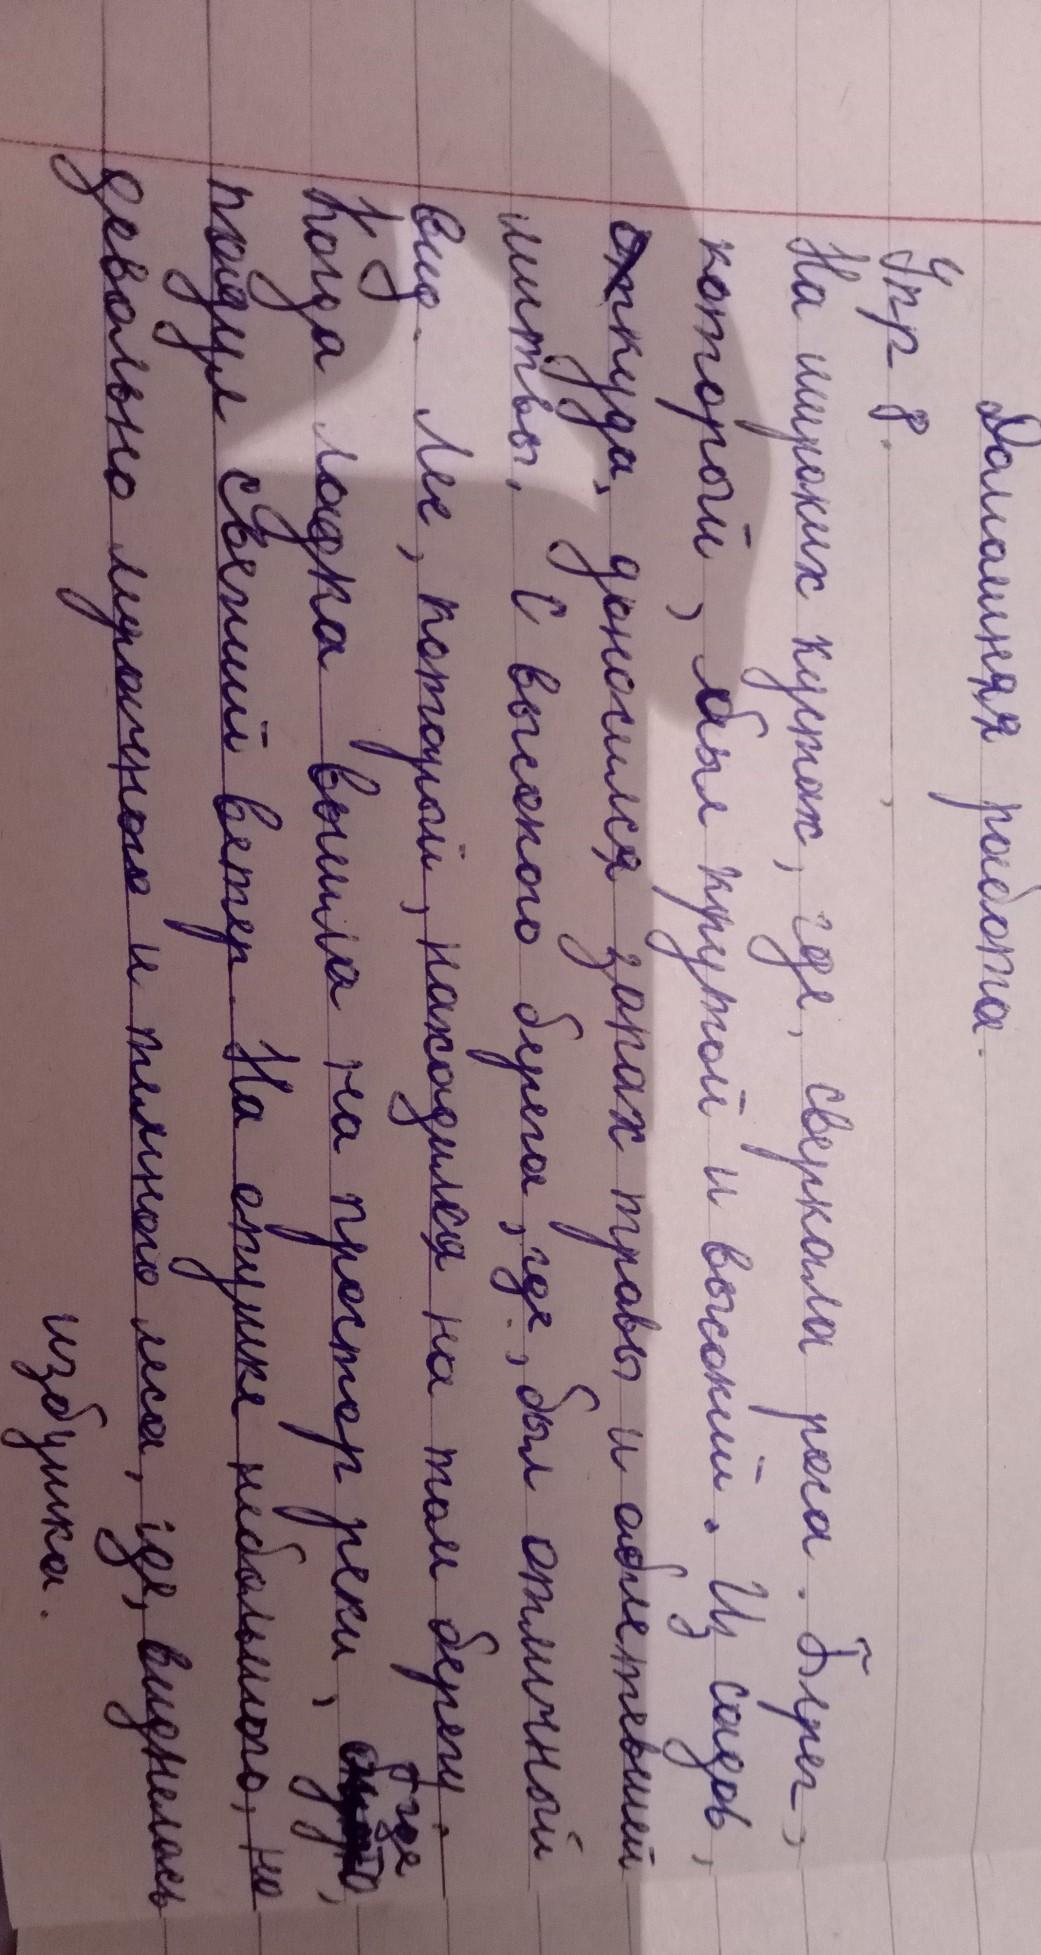 Домашняя работа.
Упр 8.
На широких кустах, где, сверкала роса. Берег,
который, был крутой и высокий. Из садов,
откуда, доносился запах травы и облетевший
литвы. С высокого берега, где, был отличный
вид. Лес, который, находился на том берегу.
Когда лодка вышла на простор реки, где,
подул свежий ветер. На опушке небольшого, но
девольно мрачного и тёмного леса, где, виднелась
избушка.